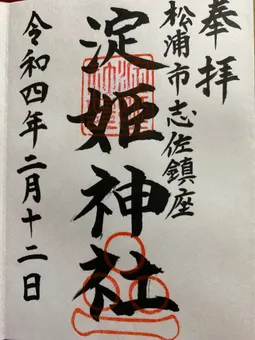 奉拝
松浦市志佐鎮座
淀姫神社
令和四年二月十二日